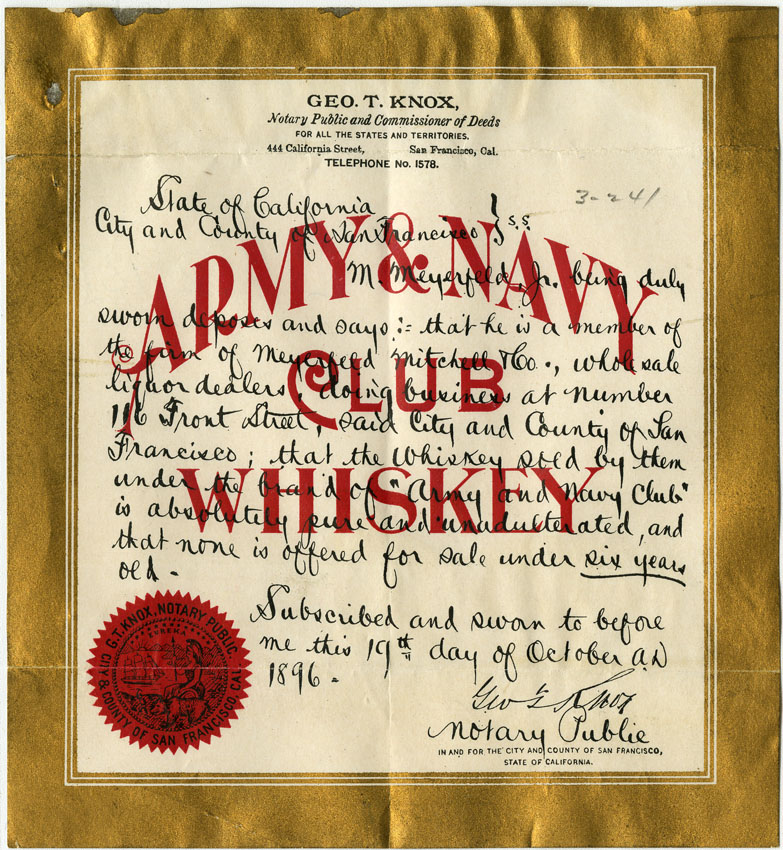 GEO. T. KNOX,
Notary Public and Commissioner of Deeds
FOR ALL THE STATES AND TERRITORIES.
444 California Street, San Francisco, Cal.
TELEPHONE No. 1578.
3-241
State of California
City and County of San Francisco } s.s.
M. Meyerfeld, Jr. being duly
sworn deposes and says:- that he is a member of
the firm of Meyerfeld Mitchell & Co., wholesale
liquor dealers, doing business at number
116 Front Street, said City and County of San
Francisco; that the Whiskey sold by them
under the brand of "Army and Navy Club"
is absolutely pure and unadulterated, and
that none is offered for sale under six years
old.
ARMY & NAVY
CLUB
WHISKEY
Subscribed and sworn to before
me this 19th day of October A.D
1896.
Geo T Knox
Notary Public
IN AND FOR THE CITY AND COUNTY OF SAN FRANCISCO,
STATE OF CALIFORNIA.
G.T. KNOX, NOTARY PUBLIC
CITY & COUNTY OF SAN FRANCISCO, CAL.
EUREKA